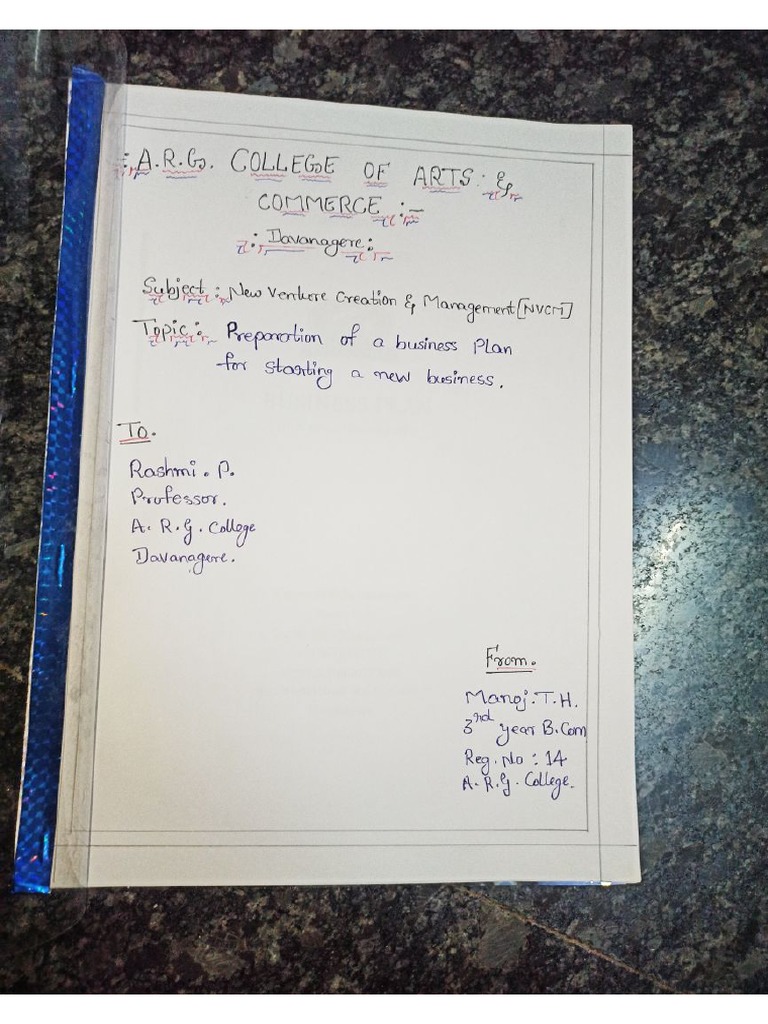 :A.R.G. COLLEGE OF ARTS: &
COMMERCE :-
: Davanagere :
Subject : New Venture Creation & Management [NVCM]
Topic : Preparation of a business Plan
for starting a new business.
To.
Rashmi . P.
Professor.
A. R. G. College
Davanagere.
From.
Manoj. T. H.
3rd year B.Com
Reg. No : 14
A. R. G. College.